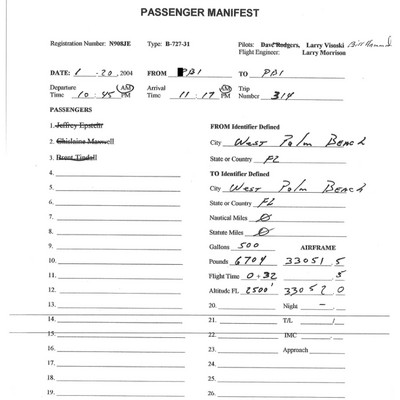 PASSENGER MANIFEST
Registration Number: N908JE Type: B-727-31 Pilots: Dave Rodgers, Larry Visoski Bill Hammond
Flight Engineer: Larry Morrison
DATE: 1-20, 2004 FROM PBI TO PBI
Departure AM Arrival AM Trip
Time 10:45 PM Time 11:17 PM Number 314
PASSENGERS
1. Jeffrey Epstein FROM Identifier Defined
2. Ghislaine Maxwell City West Palm Beach
3. Brent Tindall State or Country FL
4. TO Identifier Defined
5. City West Palm Beach
6. State or Country FL
7. Nautical Miles Ø
8. Statute Miles Ø
9. Gallons 500 AIRFRAME
10. Pounds 6704 33051.5
11. Flight Time 0+32 .5
12. Altitude FL 2500' 33052.0
13. 20. Night -
14. 21. T/L /
15. 22. IMC
16. 23. Approach
17. 24.
18. 25.
19. 26.